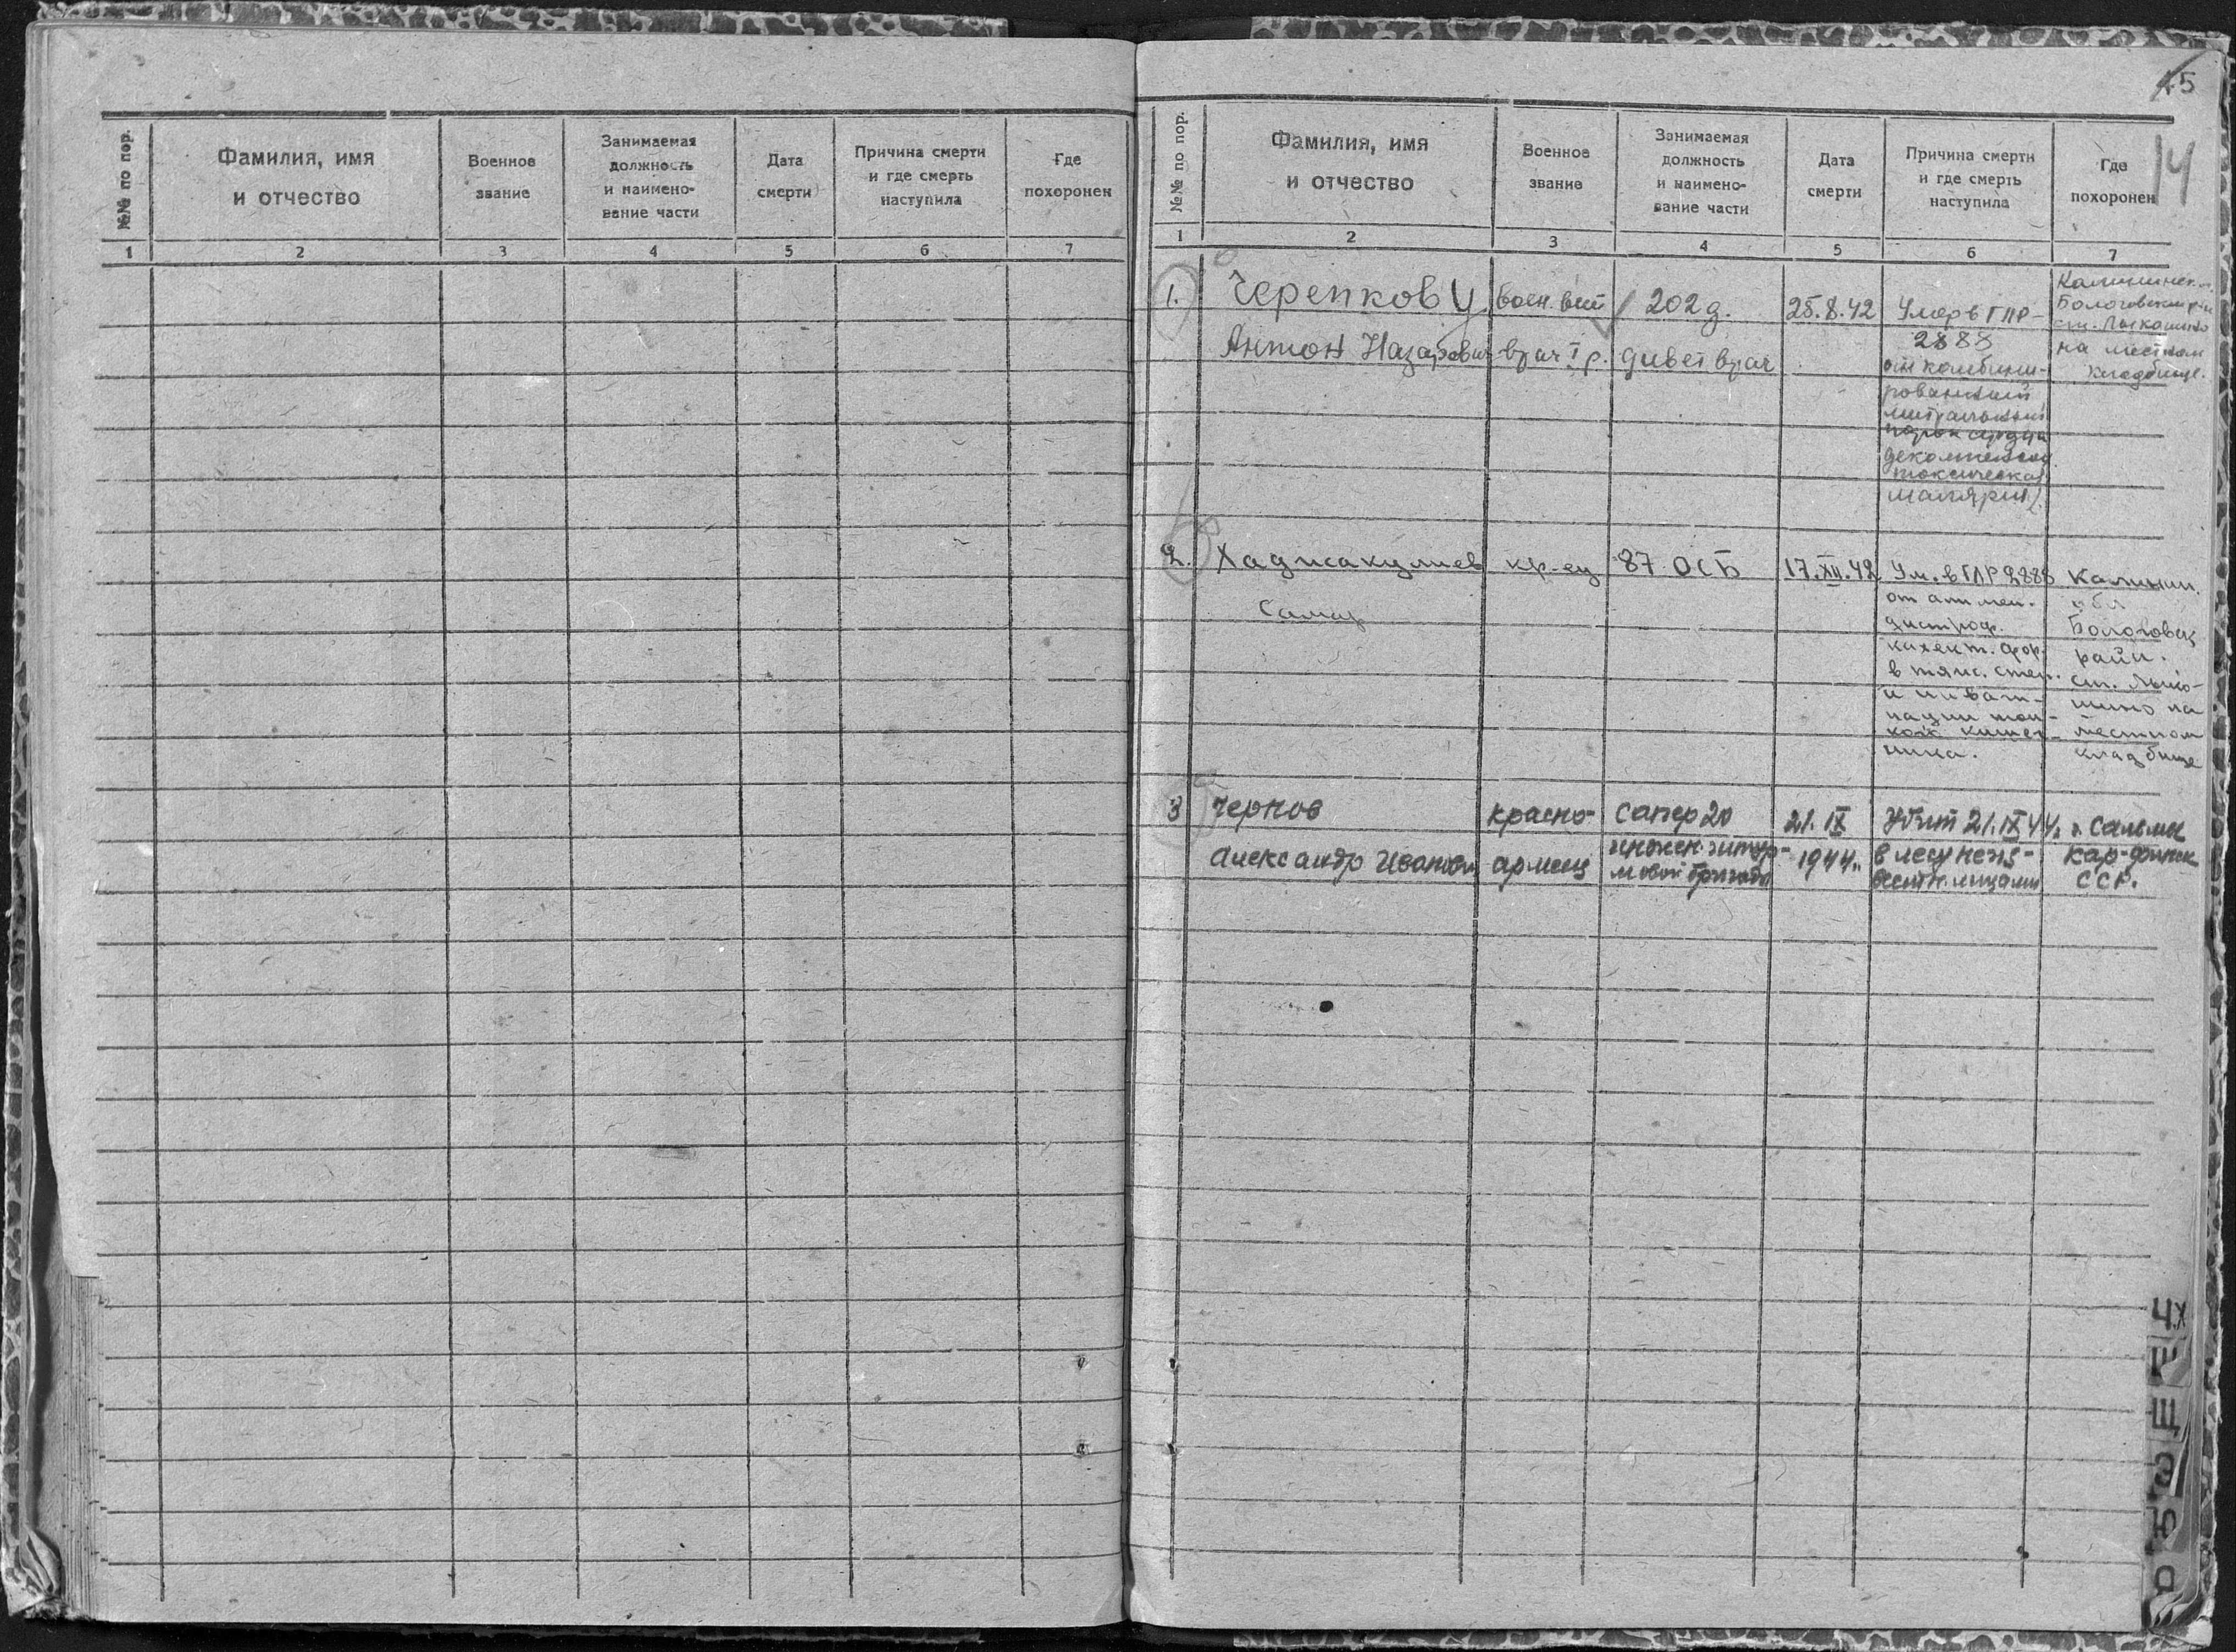 №№ по пор.
Фамилия, имя
и отчество
Военное
звание
Занимаемая
должность
и наимено-
вание части
Дата
смерти
Причина смерти
и где смерть
наступила
Где
похоронен
1 2 3 4 5 6 7
45
14
№№ по пор.
Фамилия, имя
и отчество
Военное
звание
Занимаемая
должность
и наимено-
вание части
Дата
смерти
Причина смерти
и где смерть
наступила
Где
похоронен
1 2 3 4 5 6 7
1.
Черепков
Антон Назарович
воен. вет
врач I р.
202 д.
дивет врач
25.8.42
Умер в ГПР-
2888
от комбини-
рованный
митральный
порок сердца
токсическая
малярия
Бологовский р-н
на местном
кладбище.
2.
Хаджакулиев
кр-ец
87 ОСБ
17.XII.42
Ум. в ГЛР 2888
от алимен.
дистроф.
кахект. фор.
в тяж. степ.
и инваги-
нации тон-
кого кишеч-
ника.
Калинин.
обл
Бологовск
район.
ст. Лыко-
шино на
местном
кладбище
3
Чернов
Александр Иванович
красно-
армеец
сапер 20
инжен. штур-
мовой бригады
21.IX
1944г.
Убит 21.IX 44г.
в лесу неиз-
вестн. лицами
г. Сальми
Кар-финск
ССР.
Ч.Х
Ш
Щ
Э
Ю
Я